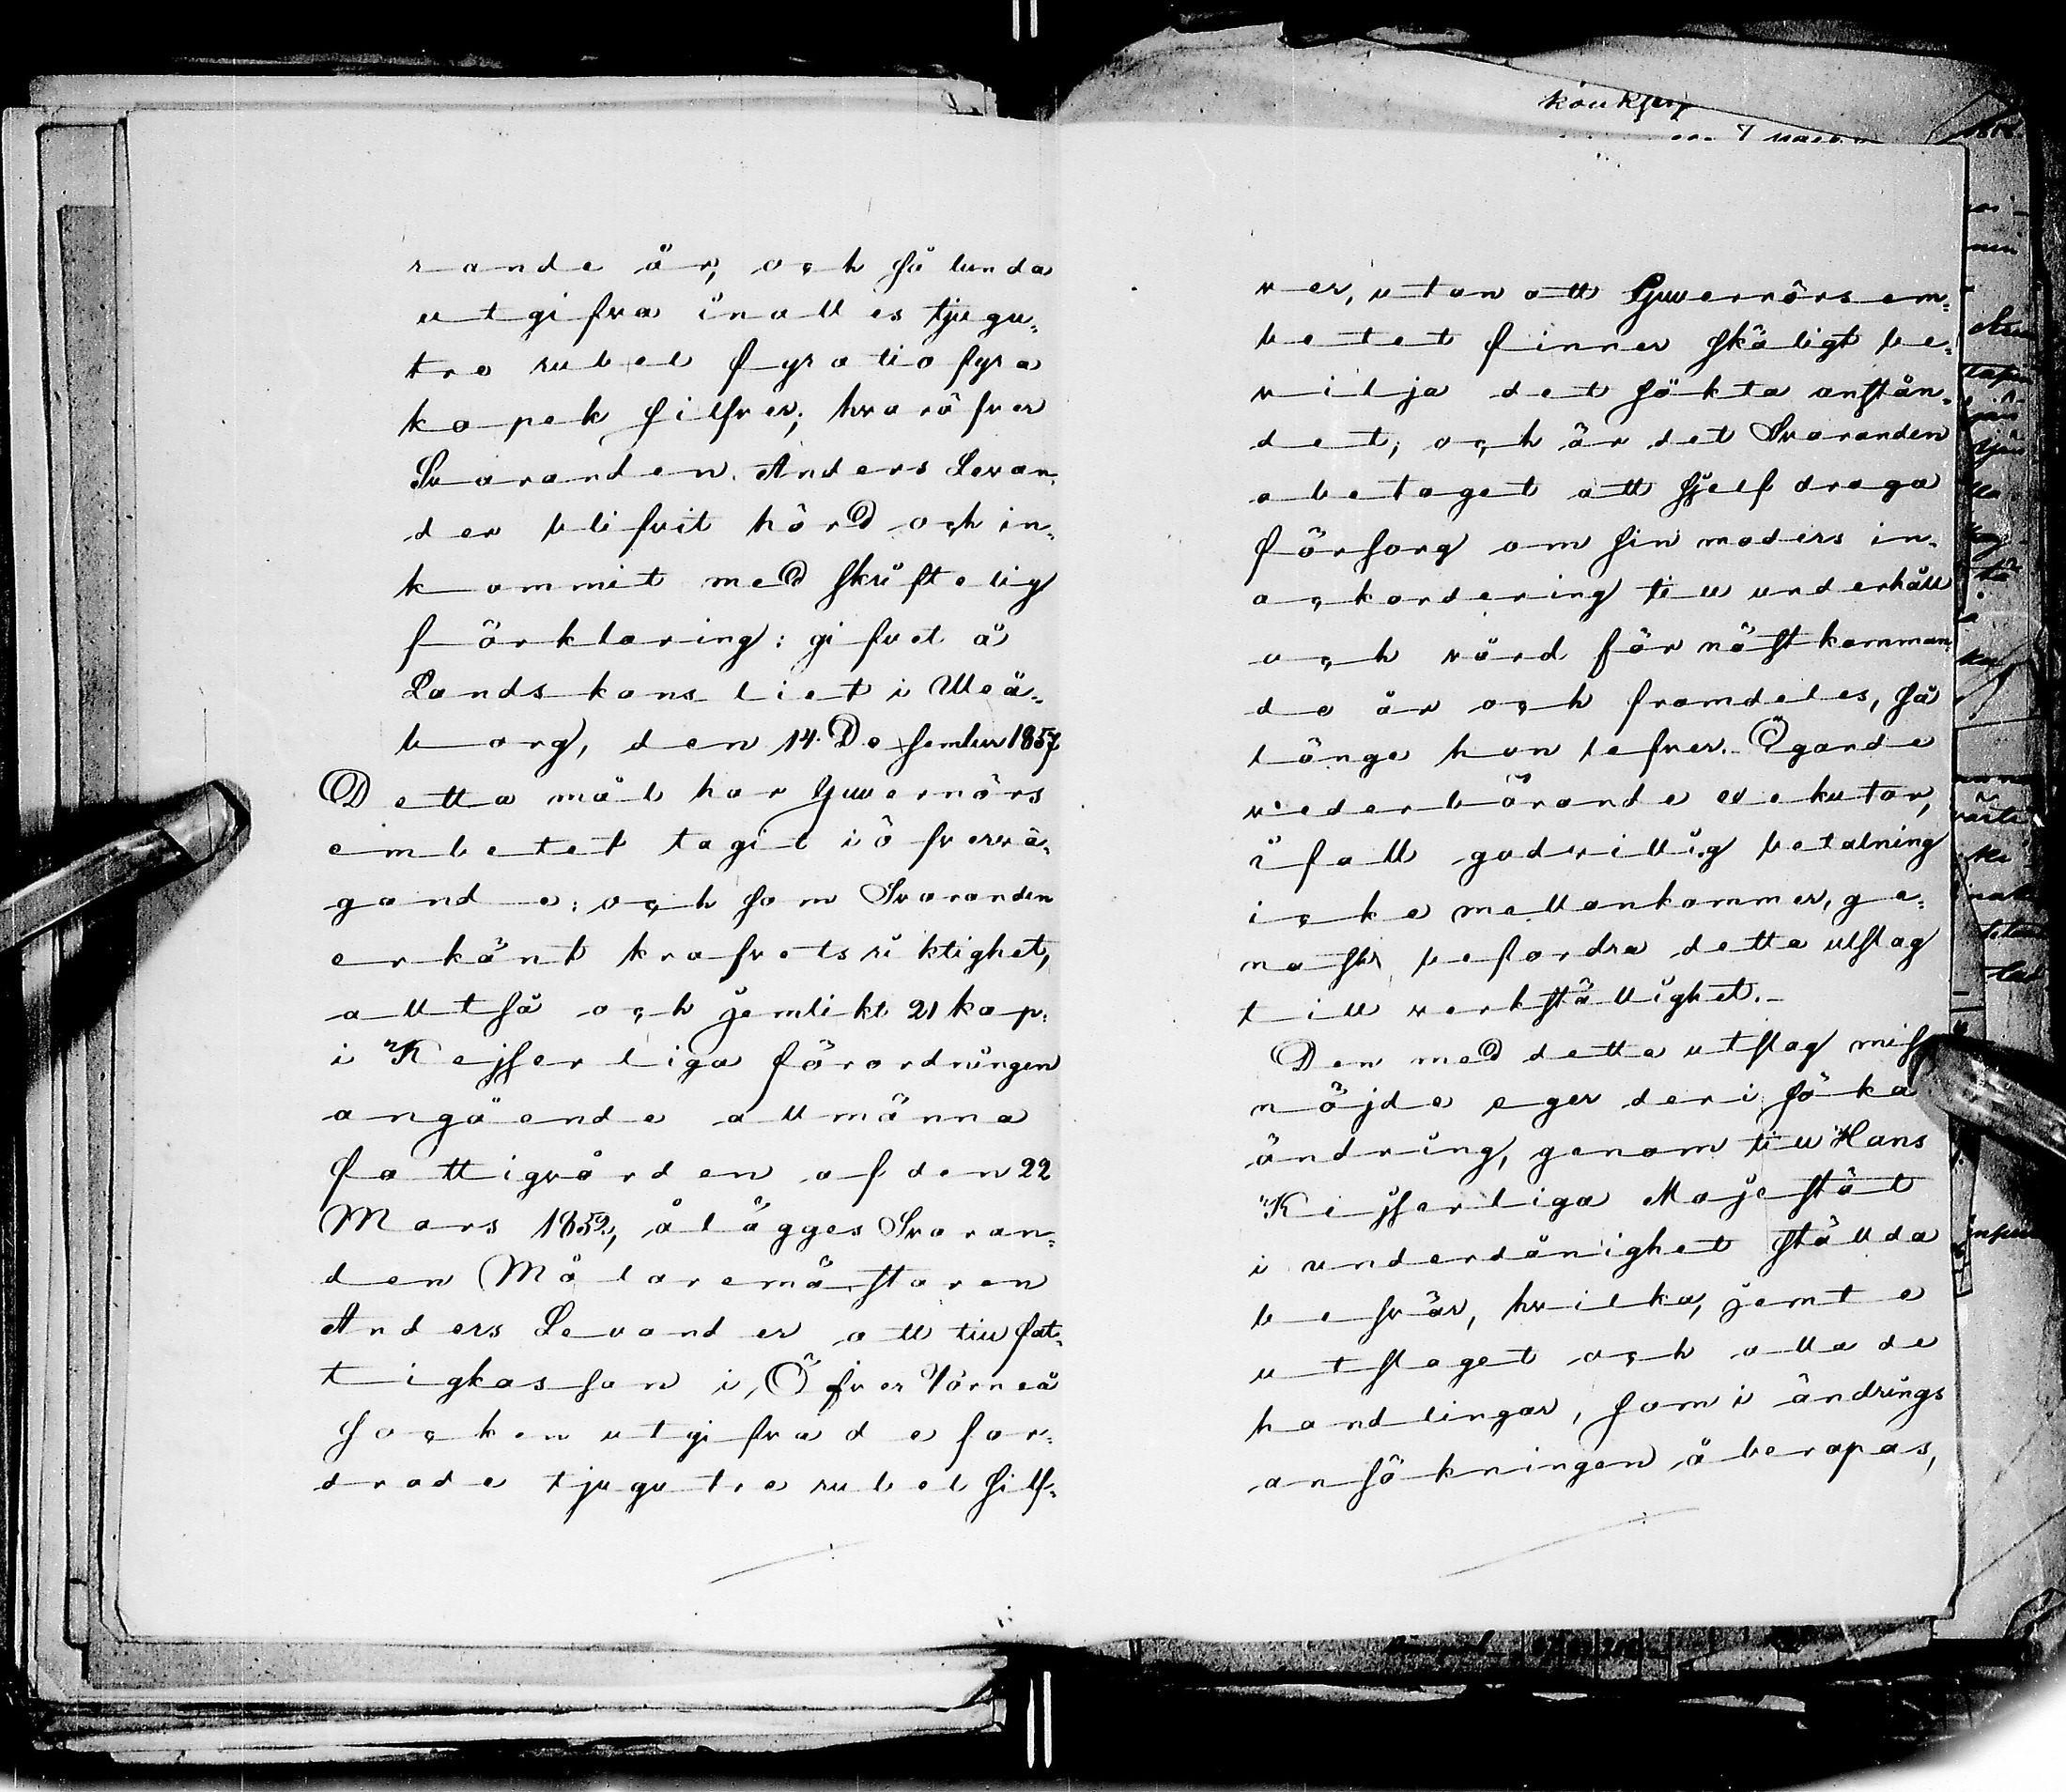 rande år, och så lunda
utgifva inalles tjugu-
tre rubel fyratiofyra
kopek silfver; hvaröfver
Svaranden Anders Levan-
der blifvit hörd och in-
kommit med skriftelig
förklaring: gifvet å
Landskansliet i Uleå-
borg, den 14 December 1857
Detta mål har Guvernörs
embetet tagit i öfvervä-
gande; och som Svaranden
erkänt krafvets riktighet,
alltså och jemlikt 21 kap.
i Kejserliga förordningen
angående allmänna
fattigvården af den 22
Mars 1852, ålägges Svaran-
den Målaremästaren
Anders Levander att till fat-
tigkassan i Öfver Torneå
Socken utgifva de for-
drade tjugutre rubel silf-
ver, utan att Guvernörsem-
betet finner skäligt be-
vilja det sökta anstån-
det; och är det Svaranden
obetaget att sjelf draga
försorg om sin moders in-
ackordering till underhåll
och vård för nästkomman-
de år och framdeles, så
länge hon lefver. Ägande
vederbörande exekutor,
ifall godvillig betalning
icke mellankommer, ge-
nast befordra detta utslag
till verkställighet.-
Den med detta utslag miss
nöjde eger deri söka
ändring, genom till Hans
Kejserliga Majestät
i underdånighet ställda
besvär, hvilka, jemte
utslaget och alla de
handlingar, som i ändrings
ansökningen åberopas,